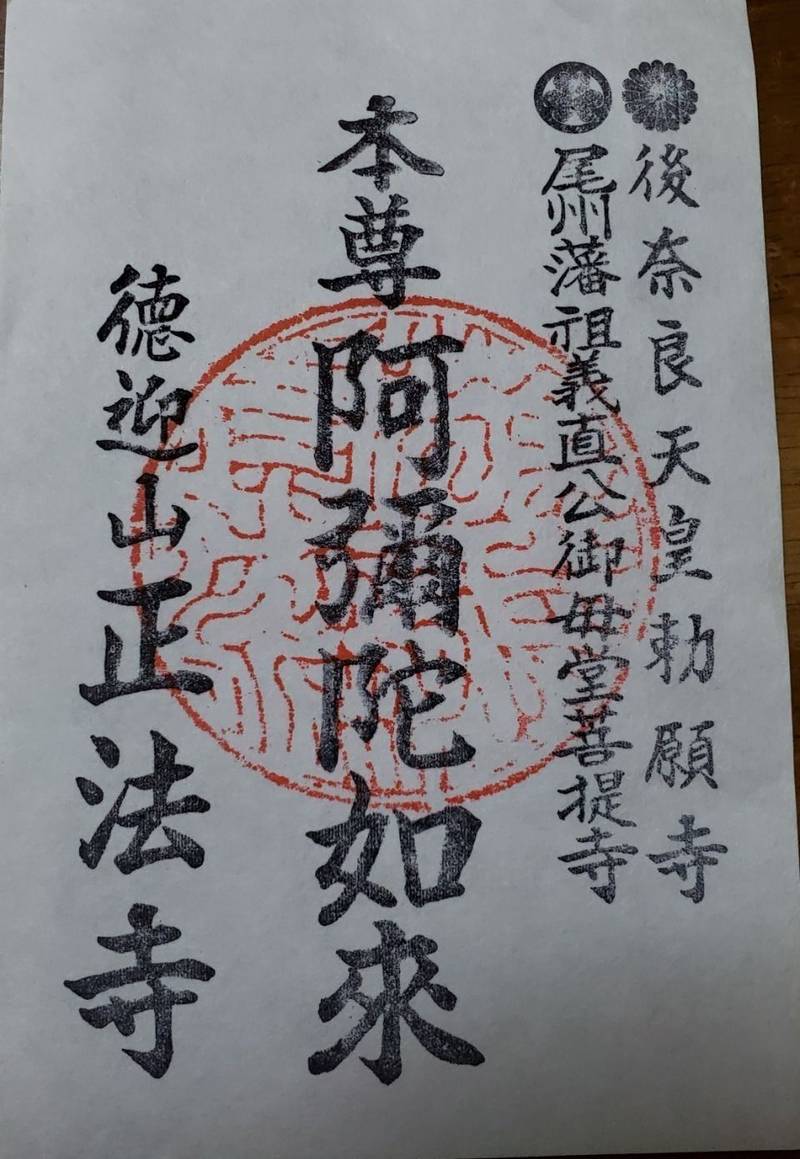 後奈良天皇勅願寺
尾州藩祖義直公御母堂菩提寺
本尊阿彌陀如來
德迎山正法寺